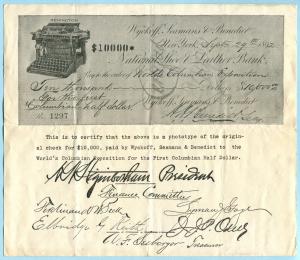 REMINGTON
Wyckoff, Seamans & Benedict
$10000* New York, Sept. 29th 1892
National Shoe & Leather Bank
Pay to the order of World's Columbian Exposition
Ten thousand Dollars $10,000
For the first Columbian half dollar.
Wyckoff, Seamans & Benedict
No. 1297
This is to certify that the above is a phototype of the origin-
al check for $10,000, paid by Wyckoff, Seamans & Benedict to the
World's Columbian Exposition for the First Columbian Half Dollar.
H N Higinbotham President
Finance Committee
Ferdinand W Peck Lyman J Gage
Elbridge G Keith
A. F. Seeberger Treasurer